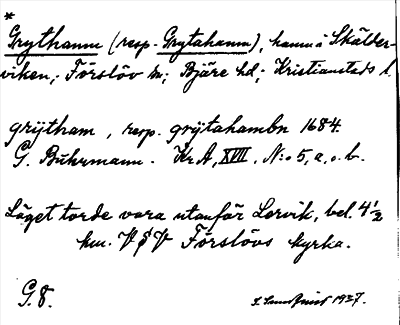 *
Grythamn (resp. Grytahamn), hamn i Skälder-
viken; Förslöv sn; Bjäre hd; Kristianstads l.
grÿtham, resp. grÿtahambn 1684.
G. Buhrmann. Kr. A, XVIII, N:o 5, a. o. b.
Läget torde vara utanför Lervik, bel. 4 1/2
km. V §V Förslövs kyrka.
G. 8.
1927.